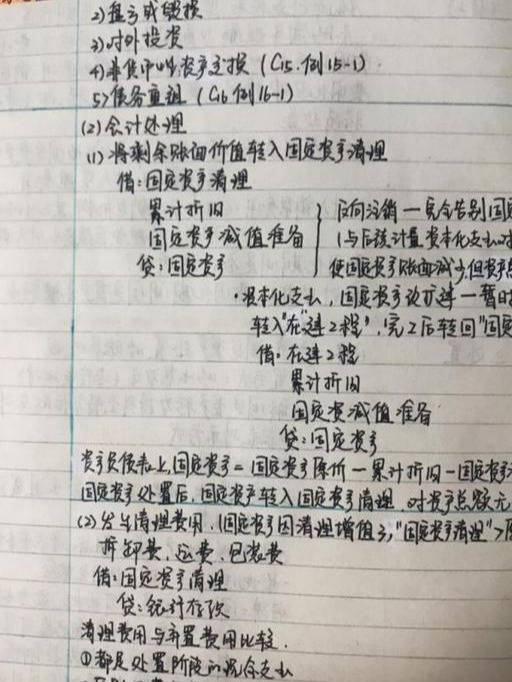 2)盘亏或毁损
3)对外投资
4)非货币性资产交换 (C15.例15-1)
5)债务重组 (C16例16-1)
(2)会计处理
(1)将剩余账面价值转入固定资产清理
借:固定资产清理
累计折旧
固定资产减值准备
贷:固定资产
反向注销—完全告别固定
(与后续计量资本化支出对
使固定资产账面减少,但资产总
·资本化支出,固定资产被扩建—暂时
转入"在建工程",完工后转回"固定
借:在建工程
累计折旧
固定资减值准备
贷:固定资产
资产负债表上,固定资产=固定资产原价—累计折旧—固定资产
固定资产处置后,固定资产转入固定资产清理,对资产总额无
(2)发生清理费用,(固定资产因清理增值了,"固定资产清理">
拆卸费、运费、包装费
借:固定资产清理
贷:银行存款
清理费用与弃置费用比较.
①都是处置阶段的现金支出